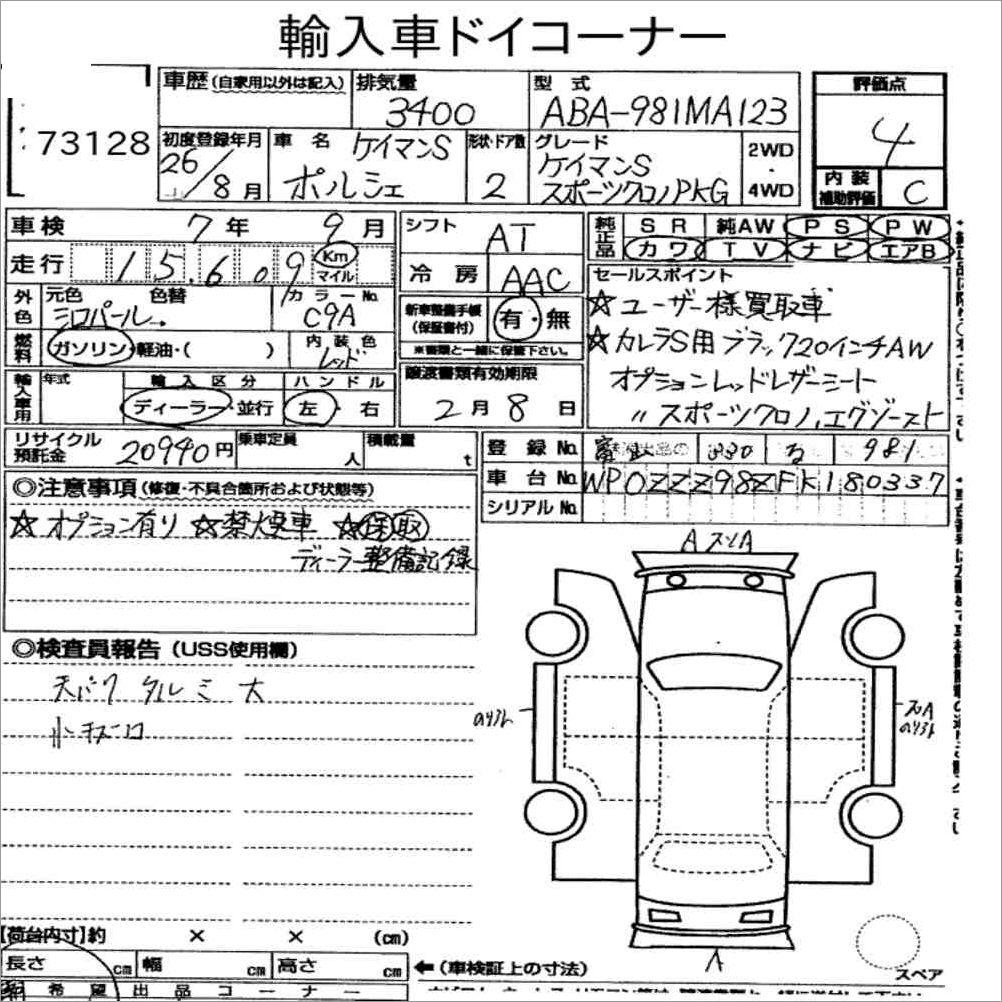 輸入車ドイコーナー
73128
車歴(自家用以外は記入) 排気量 3400 型式 ABA-981MA123 評価点 4
初度登録年月 26/8月 車名 ケイマンS ポルシェ 形状・ドア数 2 グレード ケイマンS スポーツクロノPKG 2WD・4WD 内装補助評価 C
車検 7年 9月 シフト AT 純正品 SR 純AW PS PW
走行 15,609 Km マイル 冷房 AAC カワ TV ナビ エアB
外色 元色 シロパール 色替 カラーNo. C9A
新車整備手帳(保証書付) 有・無
※書類と一緒に保管下さい。
燃料 ガソリン・軽油・( ) 内装色 レッド
セールスポイント
☆ユーザー様買取車
☆カレラS用ブラック20インチAW
オプションレッドレザーシート
〃 スポーツクロノ,エグゾースト
輸入車用 年式 輸入区分 ディーラー・並行 ハンドル 左・右
譲渡書類有効期限 2月8日
リサイクル預託金 20940円 乗車定員 人 積載量 t
登録No. 330 981
車台No. WP0ZZZ98ZFK180337
シリアルNo.
◎注意事項(修復・不具合箇所および状態等)
☆オプション有り ☆禁煙車 ☆保取
ディーラー整備記録
◎検査員報告(USS使用欄)
天バク タルミ 大
小キズ
A A
A
A
スペア
【荷台内寸】約 × × (cm)
長さ cm 幅 cm 高さ cm ←(車検証上の寸法)
希望出品コーナー